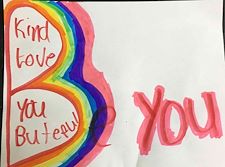 Kind
Love
You
Buteful
B YOU